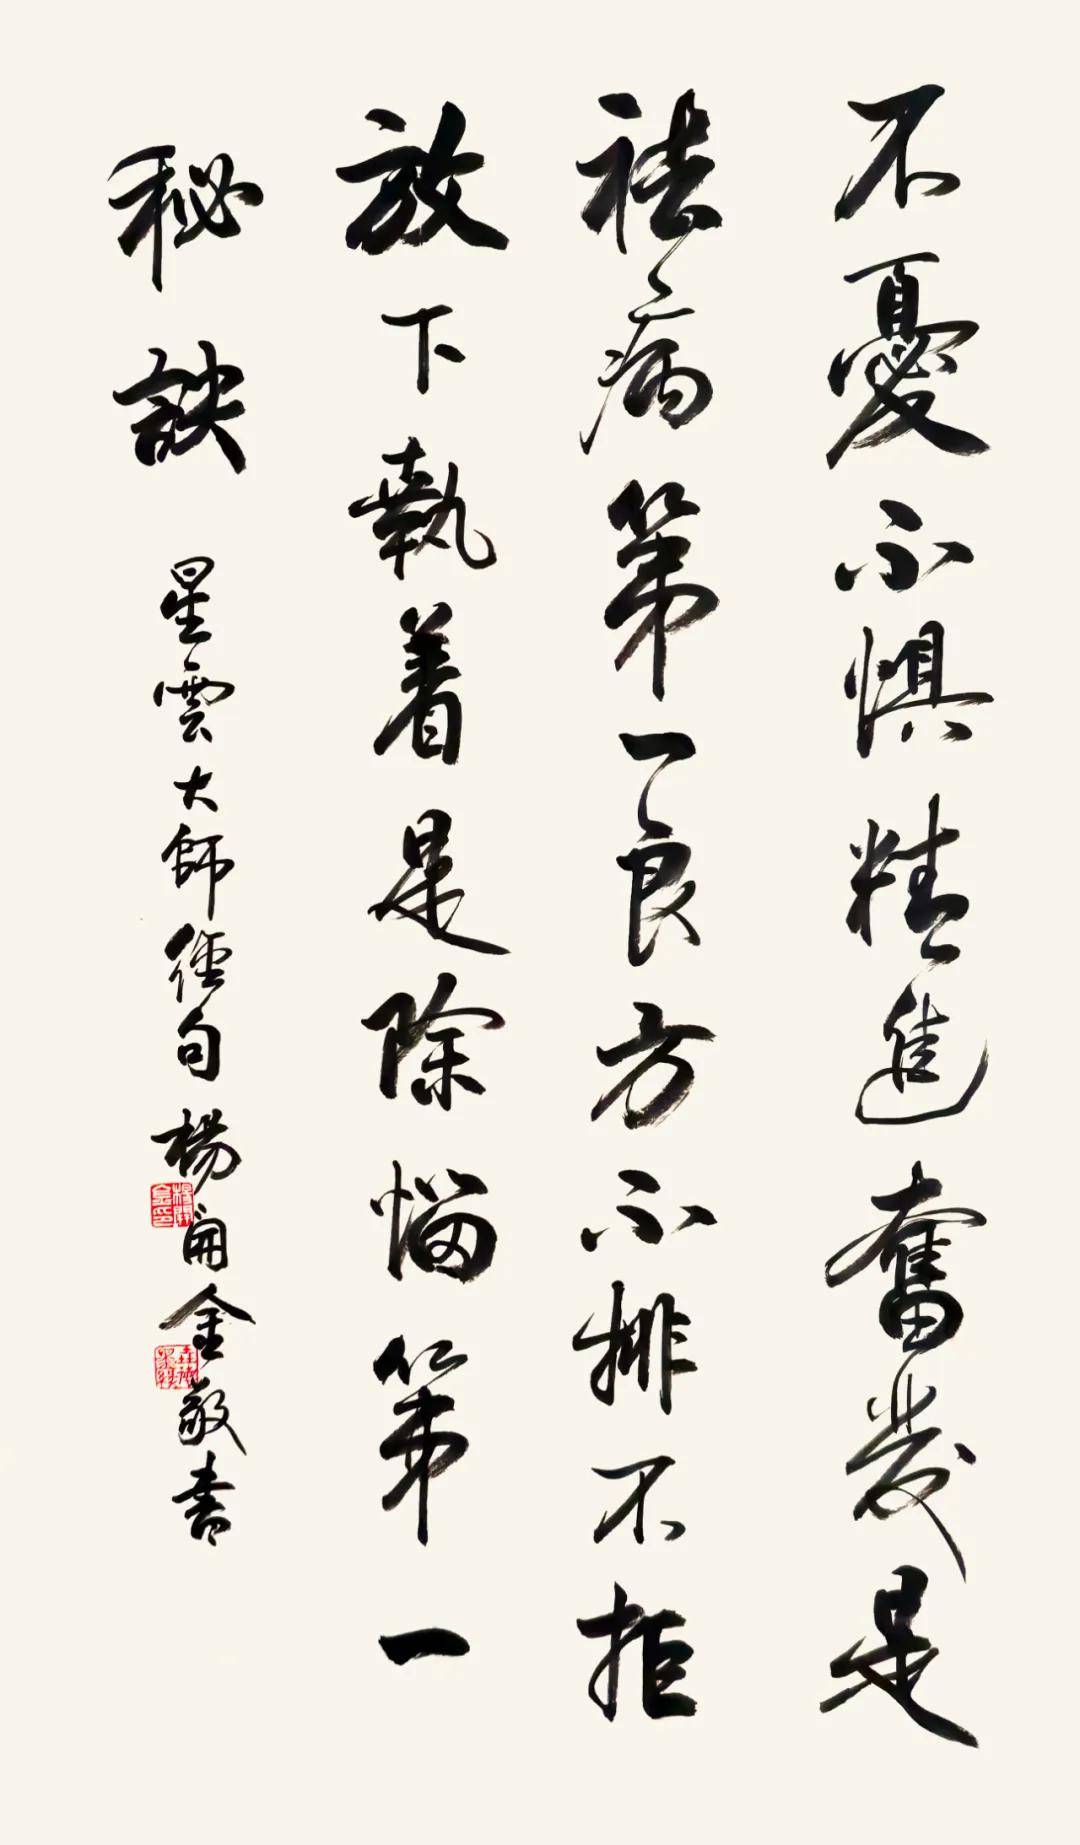 不憂不懼精進奮發是
祛病第一良方不排不拒
放下執着是除惱第一
秘訣
星雲大師經句 楊開金敬書